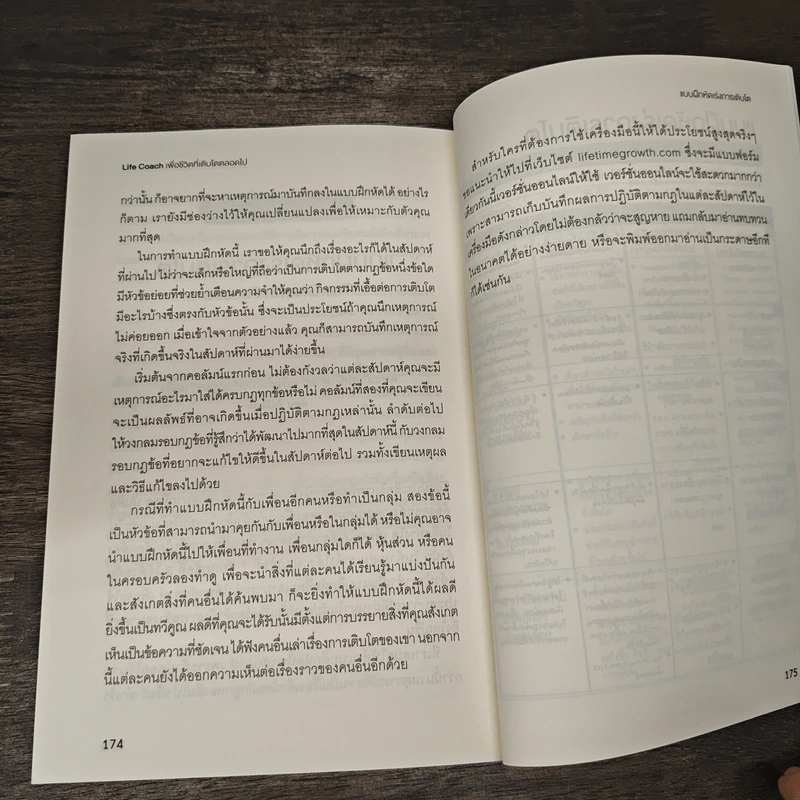 Life Coach เพื่อชีวิตที่เติบโตตลอดไป
กว่านั้น ก็อาจยากที่จะหาเหตุการณ์มาบันทึกลงในแบบฝึกหัดได้ อย่างไร
ก็ตาม เรายังมีช่องว่างไว้ให้คุณเปลี่ยนแปลงเพื่อให้เหมาะกับตัวคุณ
มากที่สุด
ในการทำแบบฝึกหัดนี้ เราขอให้คุณนึกถึงเรื่องอะไรก็ได้ในสัปดาห์
ที่ผ่านไป ไม่ว่าจะเล็กหรือใหญ่ที่ถือว่าเป็นการเติบโตตามกฎข้อหนึ่งข้อใด
มีหัวข้อย่อยที่ช่วยย้ำเตือนความจำให้คุณว่า กิจกรรมที่เอื้อต่อการเติบโต
มีอะไรบ้างซึ่งตรงกับหัวข้อนั้น ซึ่งจะเป็นประโยชน์ถ้าคุณนึกเหตุการณ์
ไม่ค่อยออก เมื่อเข้าใจจากตัวอย่างแล้ว คุณก็สามารถบันทึกเหตุการณ์
จริงที่เกิดขึ้นจริงในสัปดาห์ที่ผ่านมาได้ง่ายขึ้น
เริ่มต้นจากคอลัมน์แรกก่อน ไม่ต้องกังวลว่าแต่ละสัปดาห์คุณจะมี
เหตุการณ์อะไรมาใส่ได้ครบกฎทุกข้อหรือไม่ คอลัมน์ที่สองที่คุณจะเขียน
จะเป็นผลลัพธ์ที่อาจเกิดขึ้นเมื่อปฏิบัติตามกฎเหล่านั้น ลำดับต่อไป
ให้วงกลมรอบกฎข้อที่รู้สึกว่าได้พัฒนาไปมากที่สุดในสัปดาห์นี้ กับวงกลม
รอบกฎข้อที่อยากจะแก้ไขให้ดีขึ้นในสัปดาห์ต่อไป รวมทั้งเขียนเหตุผล
และวิธีแก้ไขลงไปด้วย
กรณีที่ทำแบบฝึกหัดนี้กับเพื่อนอีกคนหรือทำเป็นกลุ่ม สองข้อนี้
เป็นหัวข้อที่สามารถนำมาคุยกันกับเพื่อนหรือในกลุ่มได้ หรือไม่คุณอาจ
นำแบบฝึกหัดนี้ไปให้เพื่อนที่ทำงาน เพื่อนกลุ่มใดก็ได้ หุ้นส่วน หรือคน
ในครอบครัวลองทำดู เพื่อจะนำสิ่งที่แต่ละคนได้เรียนรู้มาแบ่งปันกัน
และสังเกตสิ่งที่คนอื่นได้ค้นพบมา ก็จะยิ่งทำให้แบบฝึกหัดนี้ได้ผลดี
ยิ่งขึ้นเป็นทวีคูณ ผลดีที่คุณจะได้รับนั้นมีตั้งแต่การบรรยายสิ่งที่คุณสังเกต
เห็นเป็นข้อความที่ชัดเจน ได้ฟังคนอื่นเล่าเรื่องการเติบโตของเขา นอกจาก
นี้แต่ละคนยังได้ออกความเห็นต่อเรื่องราวของคนอื่นอีกด้วย
174
แบบฝึกหัดเร่งการเติบโต
สำหรับใครที่ต้องการใช้เครื่องมือนี้ให้ได้ประโยชน์สูงสุดจริงๆ
ขอแนะนำให้ไปที่เว็บไซต์ lifetimegrowth.com ซึ่งจะมีแบบฟอร์ม
เดียวกันนี้เวอร์ชั่นออนไลน์ให้ใช้ เวอร์ชั่นออนไลน์จะใช้สะดวกมากกว่า
เพราะสามารถเก็บบันทึกผลการปฏิบัติตามกฎในแต่ละสัปดาห์ไว้ใน
เครื่องมือดังกล่าวโดยไม่ต้องกลัวว่าจะสูญหาย แถมกลับมาอ่านทบทวน
ในอนาคตได้อย่างง่ายดาย หรือจะพิมพ์ออกมาอ่านเป็นกระดาษอีกที
ก็ได้เช่นกัน
175